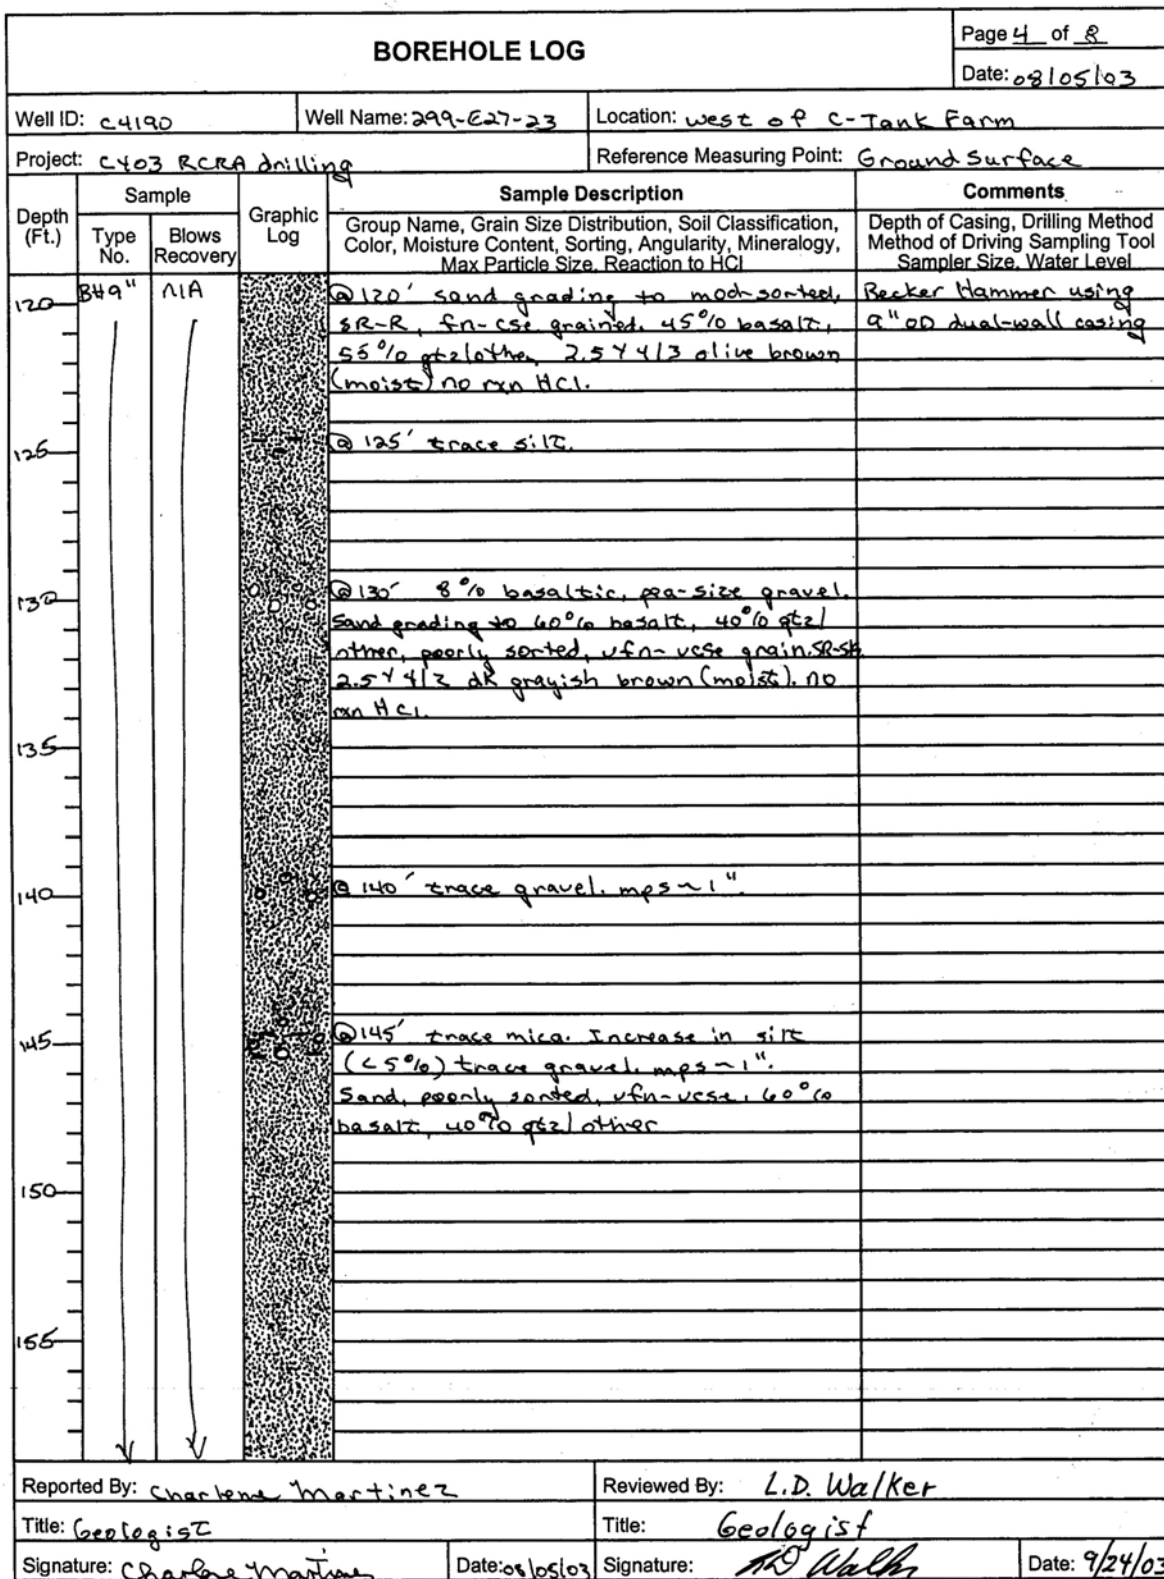 BOREHOLE LOG
Page 4 of 8
Date: 08/05/03
Well ID: C4190
Well Name: 299-E27-23
Location: west of C-Tank Farm
Project: C403 RCRA drilling
Reference Measuring Point: Ground Surface
Depth (Ft.)
Sample
Type No.
Blows Recovery
Graphic Log
Sample Description
Group Name, Grain Size Distribution, Soil Classification,
Color, Moisture Content, Sorting, Angularity, Mineralogy,
Max Particle Size, Reaction to HCl
Comments
Depth of Casing, Drilling Method
Method of Driving Sampling Tool
Sampler Size, Water Level
120 BH9" N/A @ 120' sand grading to mod-sorted, Becker Hammer using
SR-R, fn-cse grained. 45% basalt, 9" OD dual-wall casing
55% qtz/other 2.5Y 4/3 olive brown
(moist) no rxn HCl.
125 @ 125' trace silt.
130 @ 130' 8% basaltic, pea-size gravel.
Sand grading to 60% basalt, 40% qtz/
other, poorly sorted, vfn-vcse grain. SR-SA
2.5Y 4/2 dk grayish brown (moist). no
rxn HCl.
135
140 @ 140' trace gravel. mps ~ 1".
145 @ 145' trace mica. Increase in silt
(<5%) trace gravel. mps ~ 1".
Sand, poorly sorted, vfn-vcse, 60%
basalt, 40% qtz/other
150
155
Reported By: Charlene Martinez
Reviewed By: L.D. Walker
Title: Geologist
Title: Geologist
Signature: Charlene Martinez Date: 08/05/03
Signature: LD Walker Date: 9/24/03